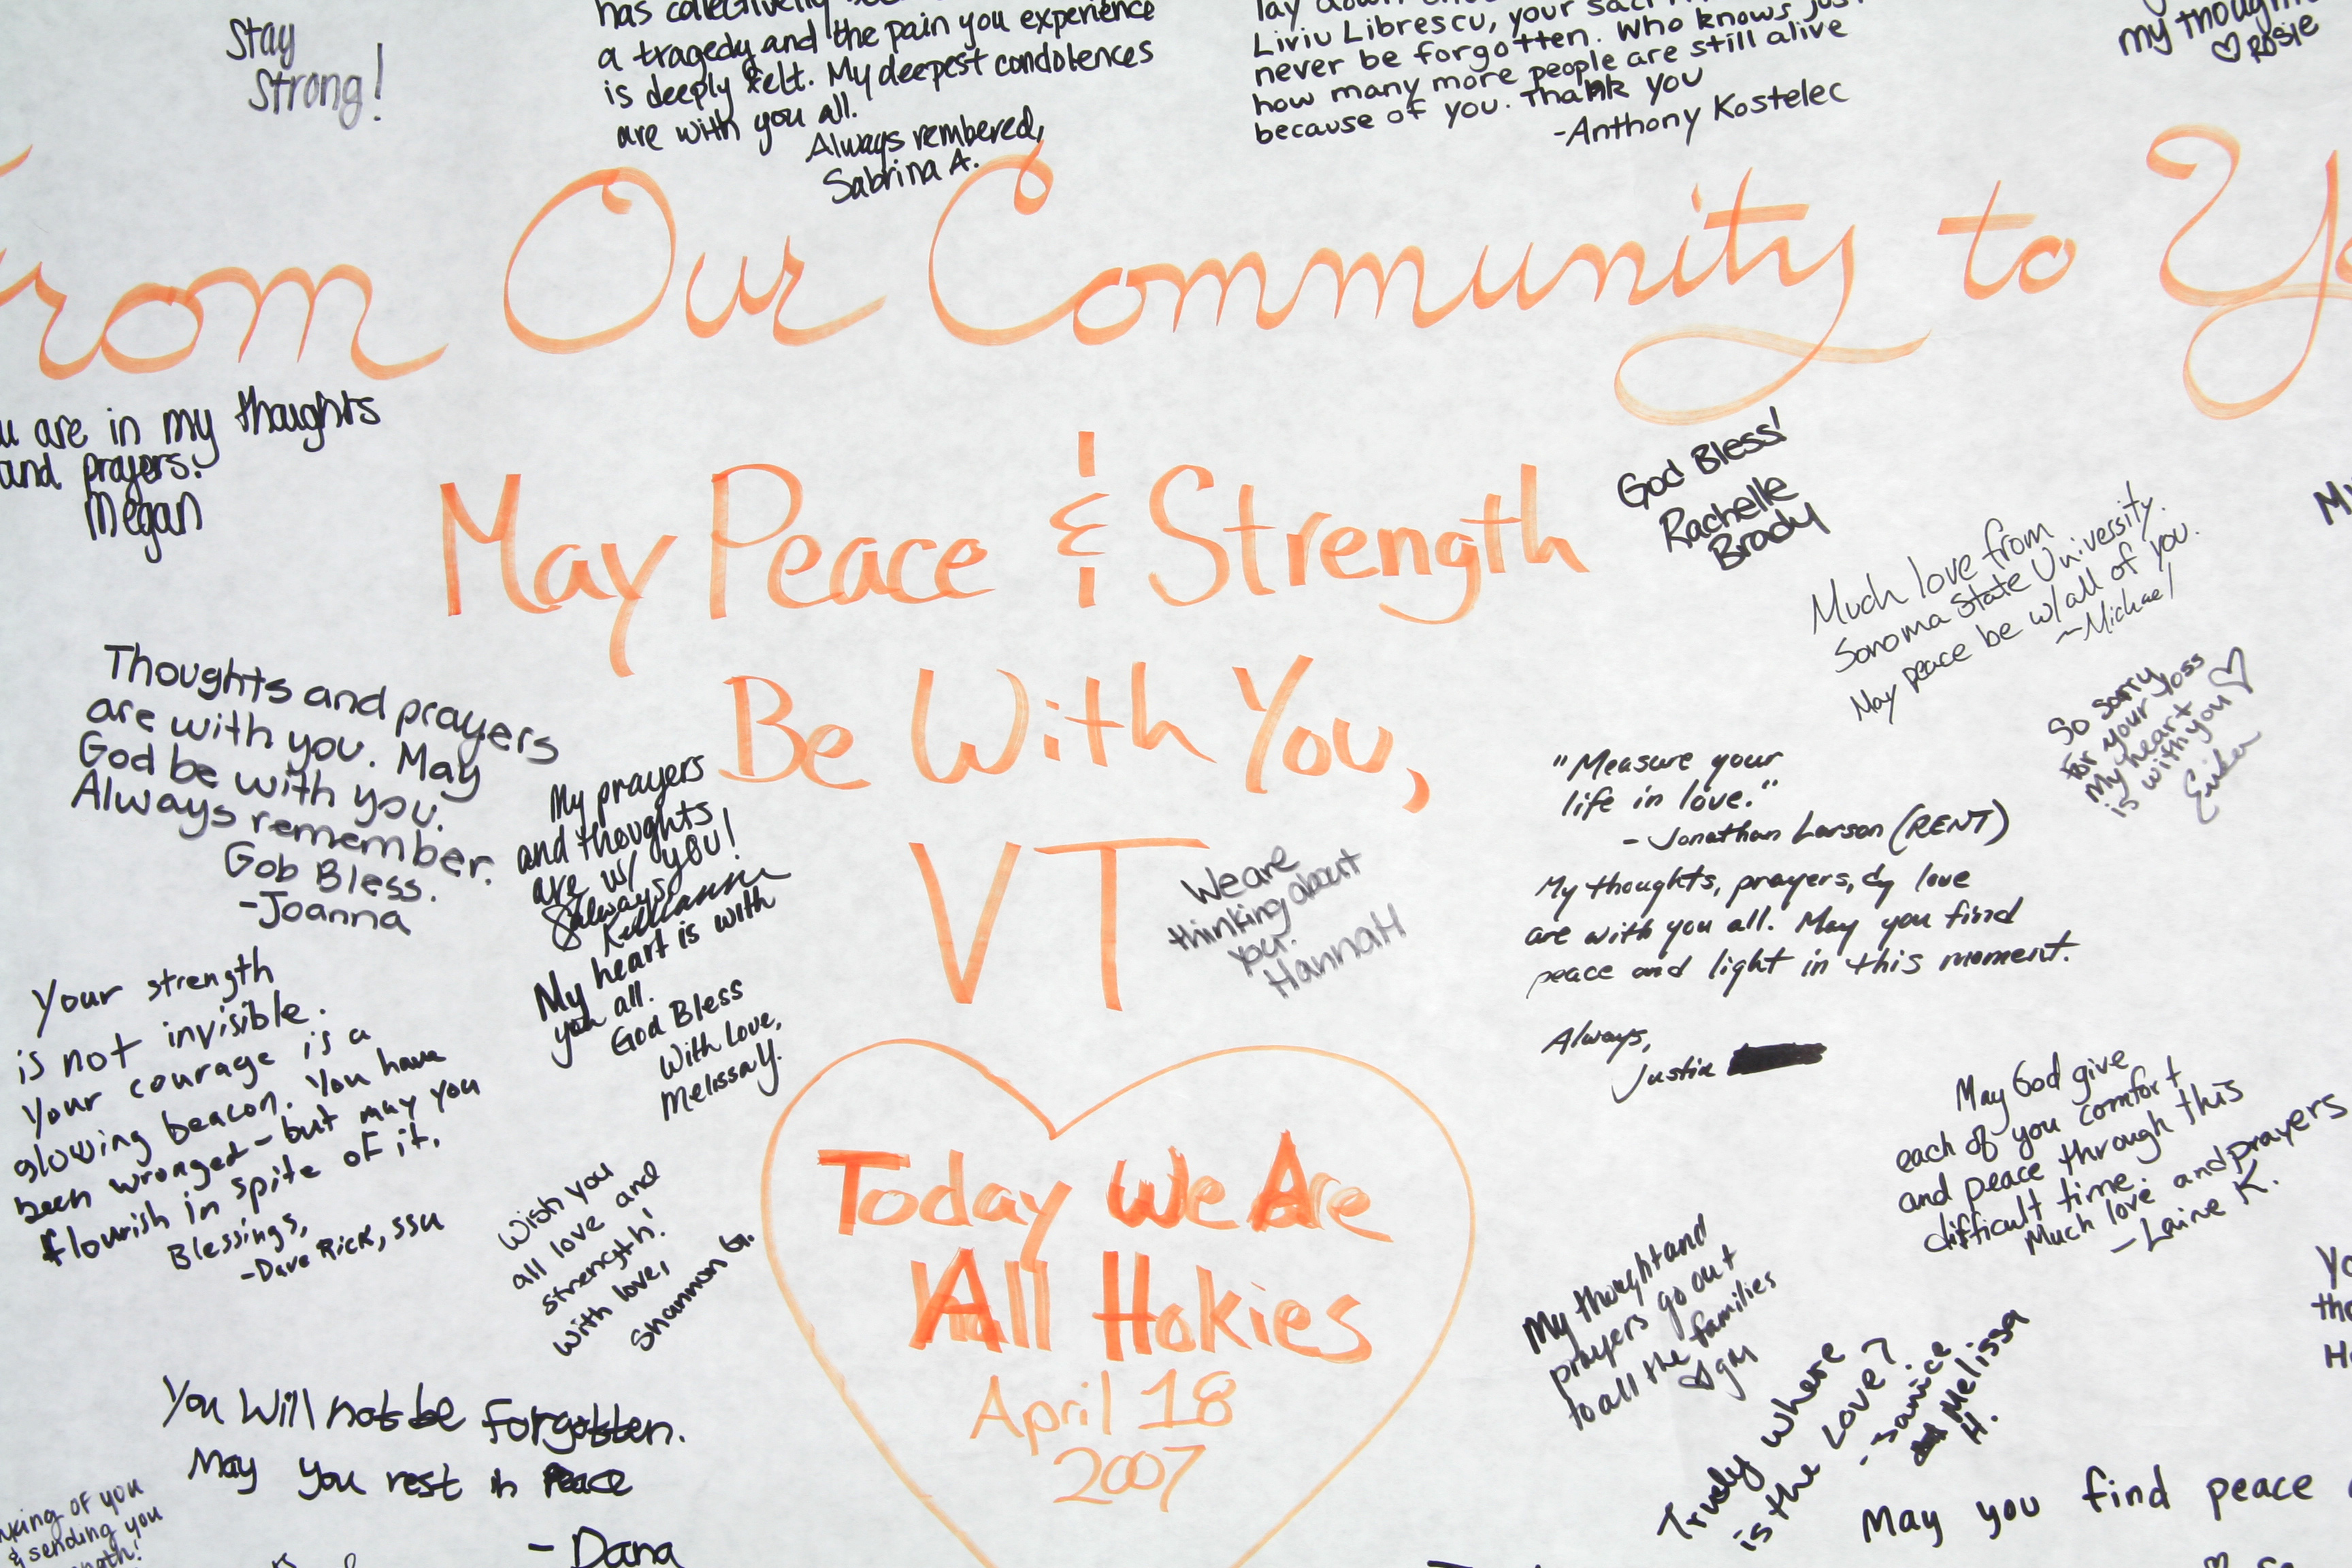 Stay
Strong!
has collectively
a tragedy and the pain you experience
is deeply felt. My deepest condolences
are with you all.
Always rembered,
Sabrina A.
lay down
Liviu Librescu, your
never be forgotten. Who knows just
how many more people are still alive
because of you. Thank you
-Anthony Kostelec
my thoughts
♡ ROSIE
From Our Community to Yo
u are in my thoughts
and prayers.
Megan
May Peace & Strength
Be With You,
VT
God Bless!
Rachelle
Brady
Much love from
Sonoma State University.
May peace be w/ all of you.
~Michael
So sorry
for your loss
My heart
is with you ♡
Erika
Thoughts and prayers
are with you. May
God be with you.
Always remember.
Gob Bless.
-Joanna
My prayers
and thoughts
are w/ you!
always
Kelleanne
My heart is with
you all.
God Bless
With Love,
Melissa Y.
We are
thinking about
you.
HannaH
"Measure your
life in love."
- Jonathan Larson (RENT)
My thoughts, prayers, & love
are with you all. May you find
peace and light in this moment.
Always,
Justin
Your strength
is not invisible.
Your courage is a
glowing beacon. You have
been wronged - but may you
flourish in spite of it.
Blessings,
-Dave Rick, SSU
Wish you
all love and
strength!
With love,
Shannon G.
Today We Are
All Hokies
April 18
2007
May God give
each of you comfort
and peace through this
difficult time.
Much love and prayers
- Laine K.
My thought and
prayers go out
to all the families
Truely where
is the Love?
- Janice
Melissa
H.
You Will not be forgotten.
May you rest in Peace
- Dana
king of you
& sending you
May you find peace